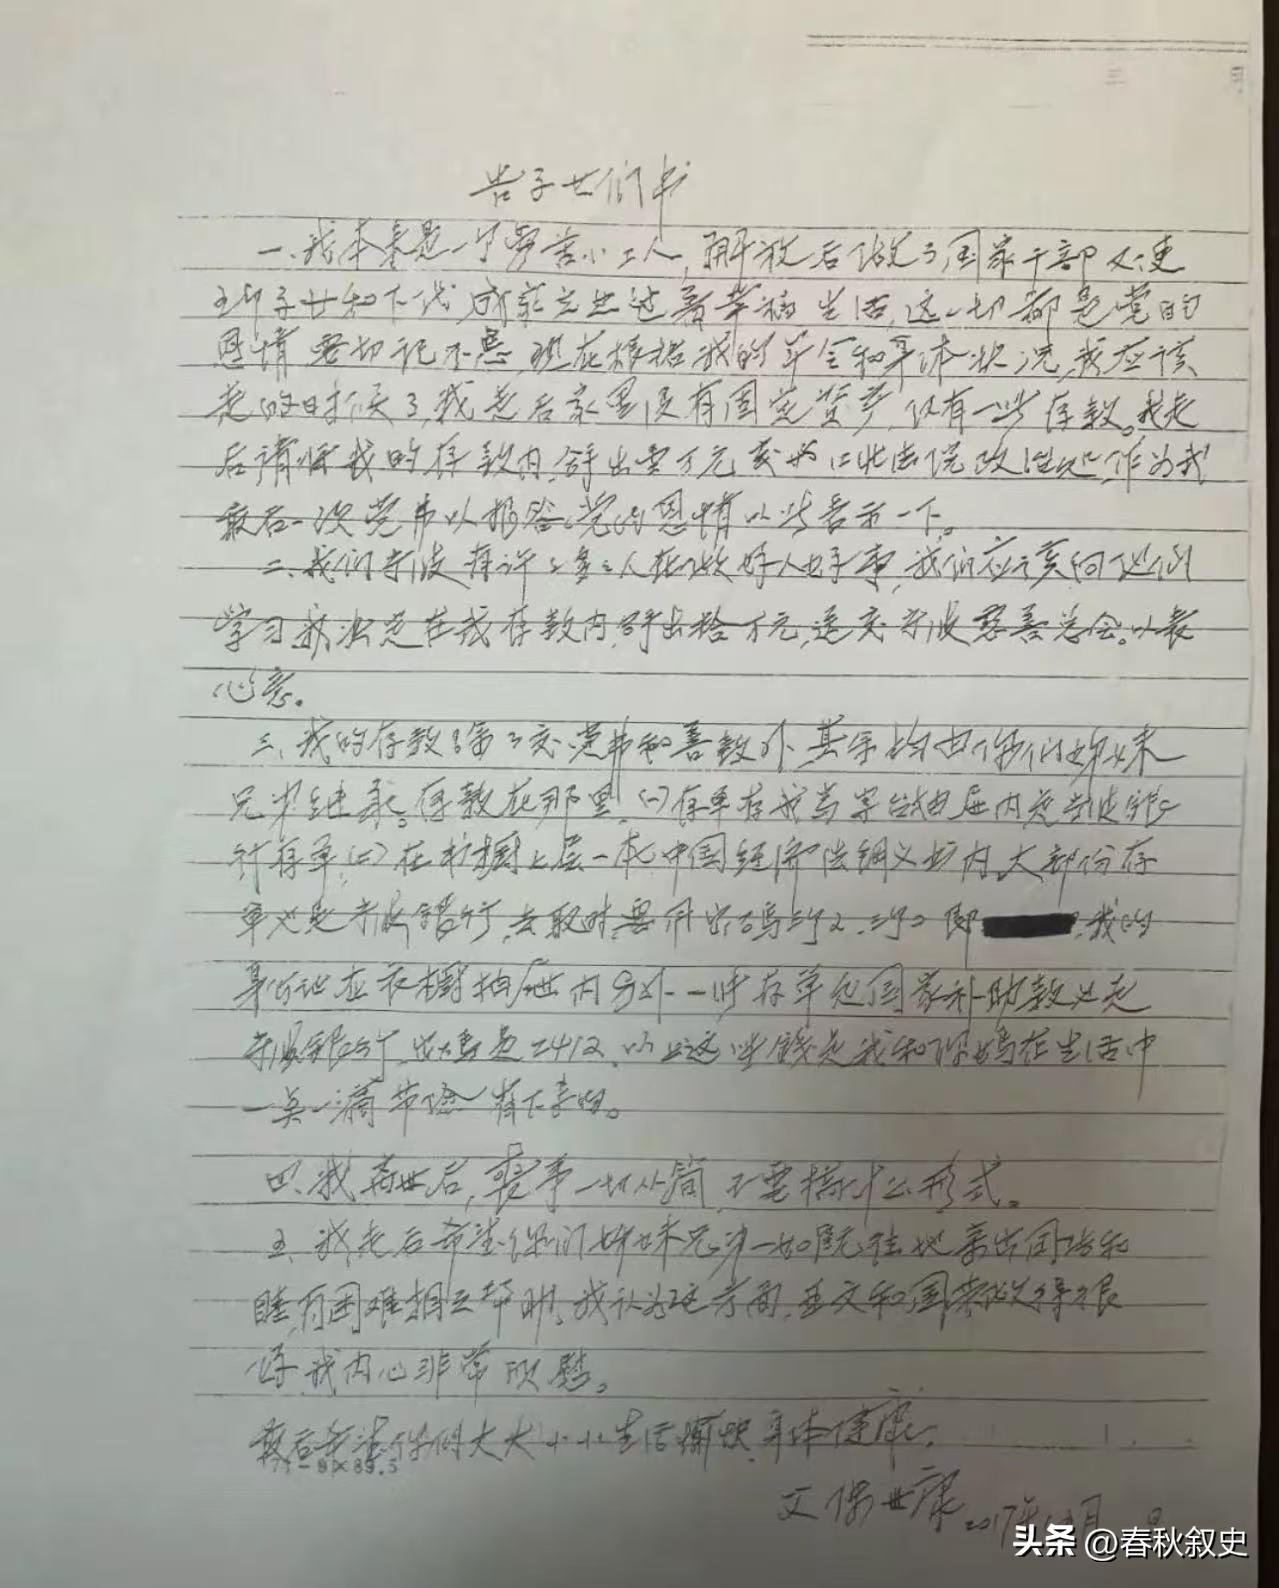 三 月
告子女们书
一、我本来是一个劳苦小工人,解放后做了国家干部,又使
子女和下代成家立业过着幸福生活,这一切都是党的
恩情,要切记不忘,现在根据我的年令和身体状况,我应该
走的时候了,我走后家里没有固定资产,仅有一些存款。我走
后请将我的存款内,拿出壹万元交给江北法院政治处,作为我
最后一次党费以报答党的恩情以此表示一下。
二、我们宁波有许多多人在做好人好事,我们应该向他们
学习,我决定在我存款内,拿出拾万元,送交宁波慈善总会。以表
心意。
三、我的存款除了交党费和善款外,其余均由你们姊妹
兄弟继承。存款在那里,(一)存单存我写字台抽屉内是宁波银行
存单,(二)在书橱上层一本中国经济法纲义书内,大部份存
单必是宁波银行,去取时要用 即 我的
身份证在衣橱抽屉内另外一些存单包国家补助款必是
宁波银行, 号是2412,以上这些钱是我和你妈在生活中
一点一滴节俭省下来的。
四、我离世后,丧事一切从简,不要搞什么形式。
五、我走后希望你们姊妹兄弟一如既往地亲密团结和
睦,有困难相互帮助,我认为这方面,亚文和国荣做得很
好,我内心非常欣慰。
最后希望你们大大小小生活愉快,身体健康。
71-8×89.5
父保康 2017年 月 日
头条 @春秋叙史